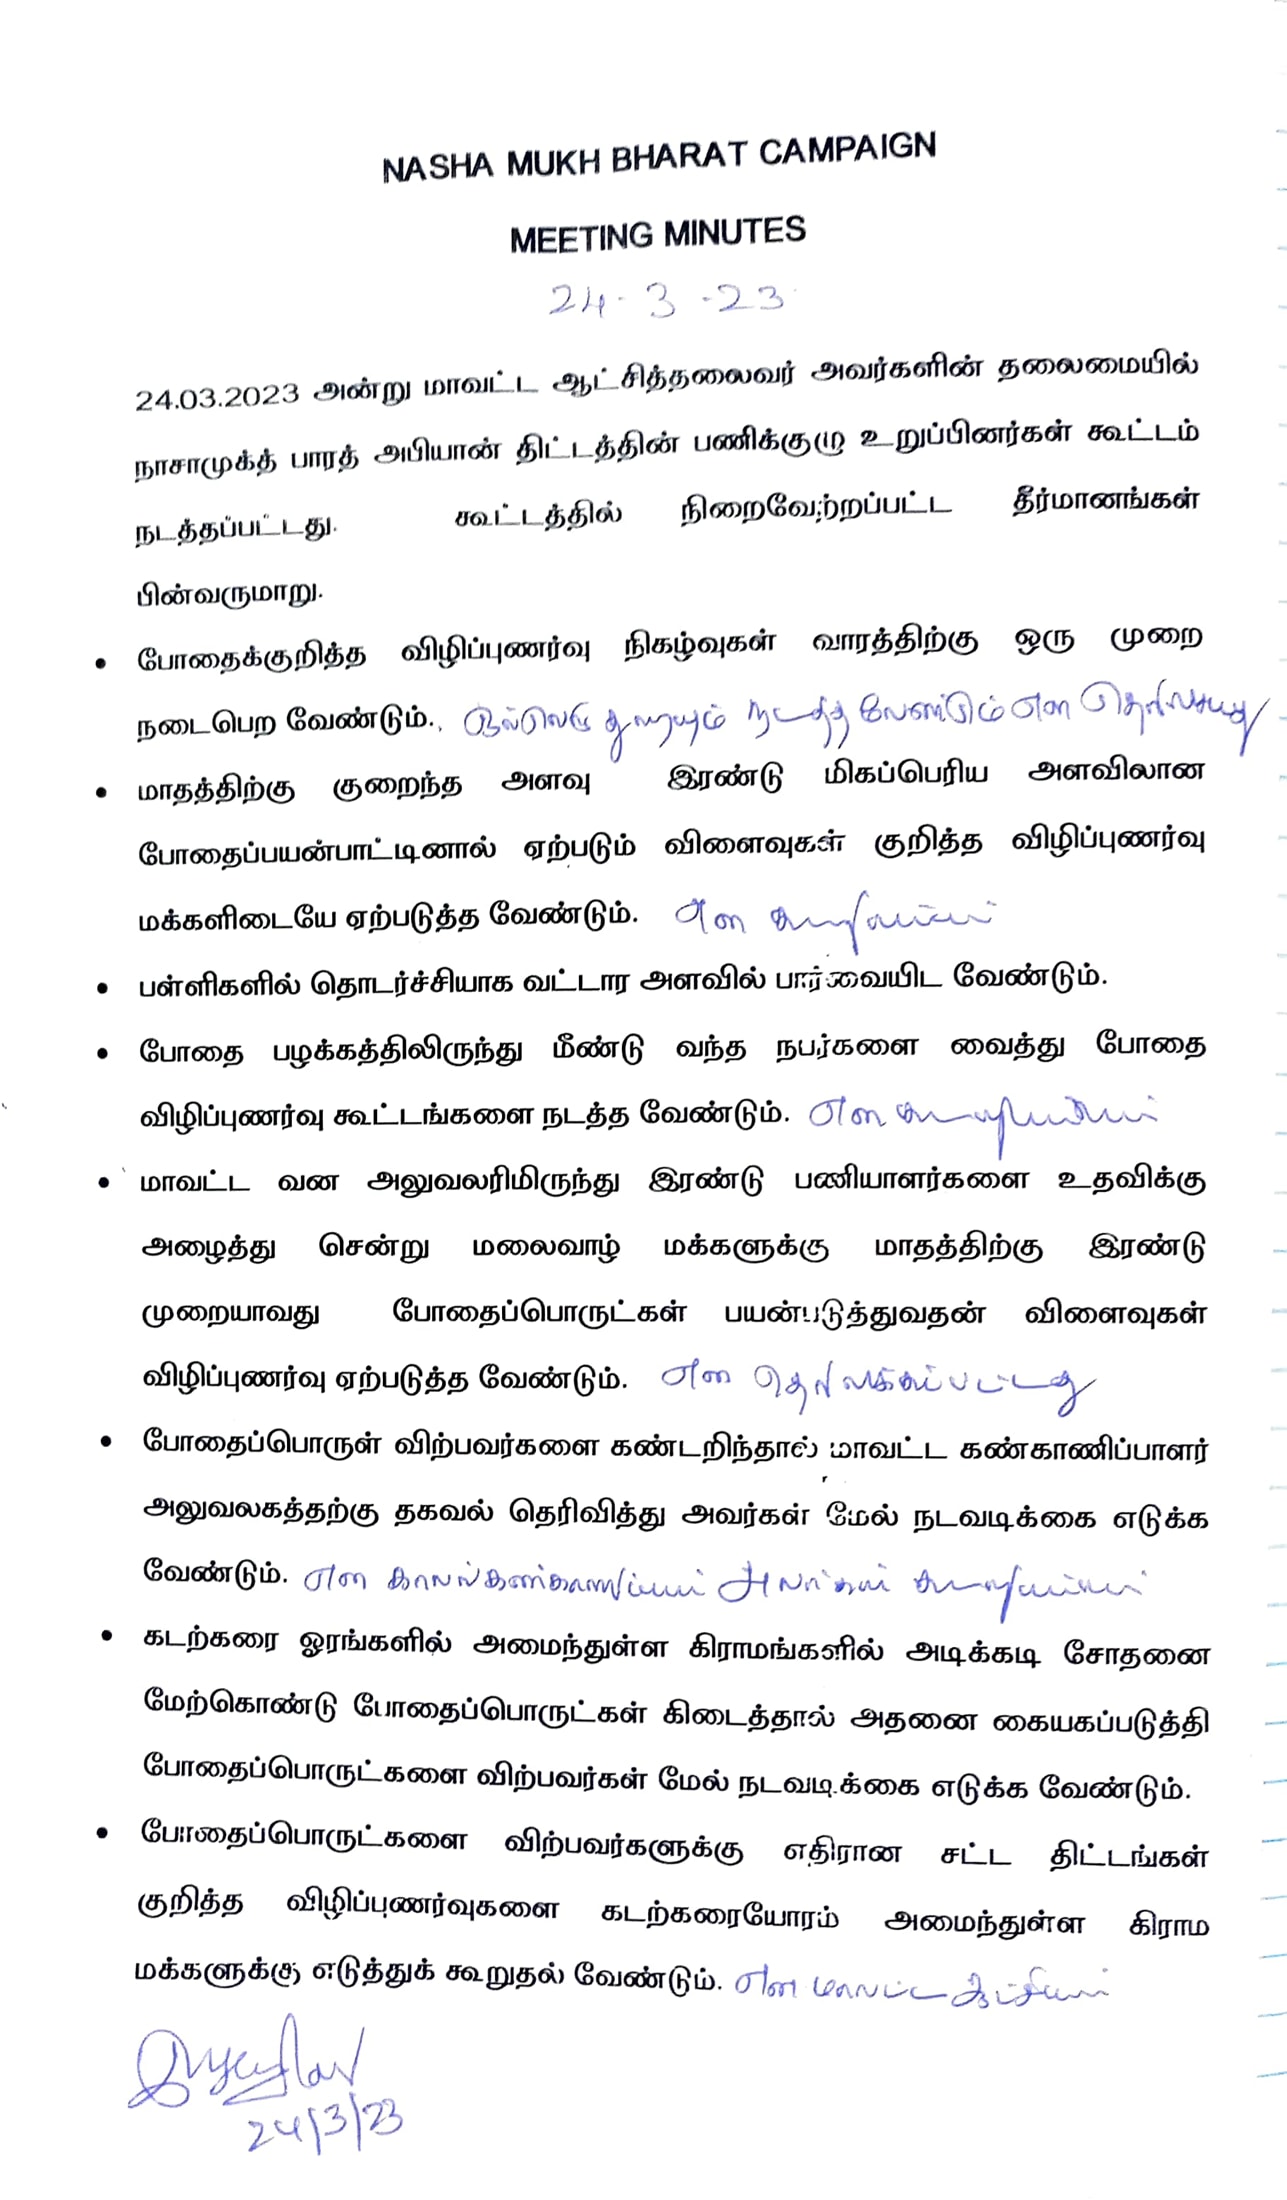 NASHA MUKH BHARAT CAMPAIGN
MEETING MINUTES
24-3-23
24.03.2023 அன்று மாவட்ட ஆட்சித்தலைவர் அவர்களின் தலைமையில்
நாசாமுக்த் பாரத் அபியான் திட்டத்தின் பணிக்குழு உறுப்பினர்கள் கூட்டம்
நடத்தப்பட்டது. கூட்டத்தில் நிறைவேற்றப்பட்ட தீர்மானங்கள்
பின்வருமாறு.
• போதைக்குறித்த விழிப்புணர்வு நிகழ்வுகள் வாரத்திற்கு ஒரு முறை
நடைபெற வேண்டும்.. துறையும் நடத்த வேண்டும் என
• மாதத்திற்கு குறைந்த அளவு இரண்டு மிகப்பெரிய அளவிலான
போதைப்பயன்பாட்டினால் ஏற்படும் விளைவுகள் குறித்த விழிப்புணர்வு
மக்களிடையே ஏற்படுத்த வேண்டும். என
• பள்ளிகளில் தொடர்ச்சியாக வட்டார அளவில் பார்வையிட வேண்டும்.
• போதை பழக்கத்திலிருந்து மீண்டு வந்த நபர்களை வைத்து போதை
விழிப்புணர்வு கூட்டங்களை நடத்த வேண்டும். என
• மாவட்ட வன அலுவலரிமிருந்து இரண்டு பணியாளர்களை உதவிக்கு
அழைத்து சென்று மலைவாழ் மக்களுக்கு மாதத்திற்கு இரண்டு
முறையாவது போதைப்பொருட்கள் பயன்படுத்துவதன் விளைவுகள்
விழிப்புணர்வு ஏற்படுத்த வேண்டும். என தெரிவிக்கப்பட்டது
• போதைப்பொருள் விற்பவர்களை கண்டறிந்தால் மாவட்ட கண்காணிப்பாளர்
அலுவலகத்தற்கு தகவல் தெரிவித்து அவர்கள் மேல் நடவடிக்கை எடுக்க
வேண்டும். என காவல்கண்காணிப்பாளர் அவர்கள்
• கடற்கரை ஓரங்களில் அமைந்துள்ள கிராமங்களில் அடிக்கடி சோதனை
மேற்கொண்டு போதைப்பொருட்கள் கிடைத்தால் அதனை கையகப்படுத்தி
போதைப்பொருட்களை விற்பவர்கள் மேல் நடவடிக்கை எடுக்க வேண்டும்.
• போதைப்பொருட்களை விற்பவர்களுக்கு எதிரான சட்ட திட்டங்கள்
குறித்த விழிப்புணர்வுகளை கடற்கரையோரம் அமைந்துள்ள கிராம
மக்களுக்கு எடுத்துக் கூறுதல் வேண்டும். என மாவட்ட ஆட்சியர்
24/3/23